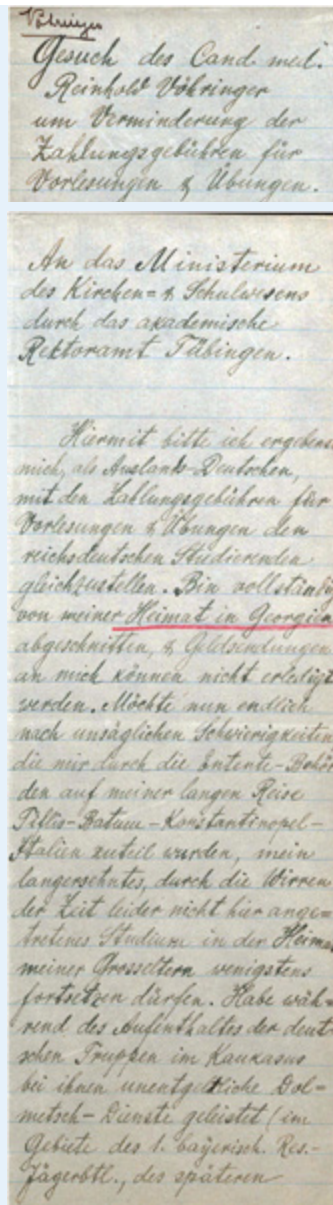 Vöhringer
Gesuch des Cand med.
Reinhold Vöhringer
um Verminderung der
Zahlungsgebühren für
Vorlesungen & Übungen.
An das Ministerium
des Kirchen= & Schulwesens
durch das akademische
Rektoramt Tübingen.
Hiermit bitte ich ergebenst
mich, als Ausland-Deutschen,
mit den Zahlungsgebühren für
Vorlesungen & Übungen den
reichsdeutschen Studierenden
gleichzustellen. Bin vollständig
von meiner Heimat in Georgien
abgeschnitten, & Geldsendungen
an mich können nicht erledigt
werden. Möchte nun endlich
nach unsäglichen Schwierigkeiten
die mir durch die Entente-Behör
den auf meiner langen Reise
Tiflis-Batum-Konstantinopel-
Italien zuteil wurden, mein
langersehntes, durch die Wirren
der Zeit leider nicht hier ange-
tretenes Studium in der Heimat
meiner Grosseltern wenigstens
fortsetzen dürfen. Habe wäh=
rend des Aufenthaltes der deut-
schen Truppen im Kaukasus
bei ihnen unentgeltliche Dol=
metsch-Dienste geleistet (im
Gebiete des 1. bayerisch. Res.-
Jägerbtl., des späteren